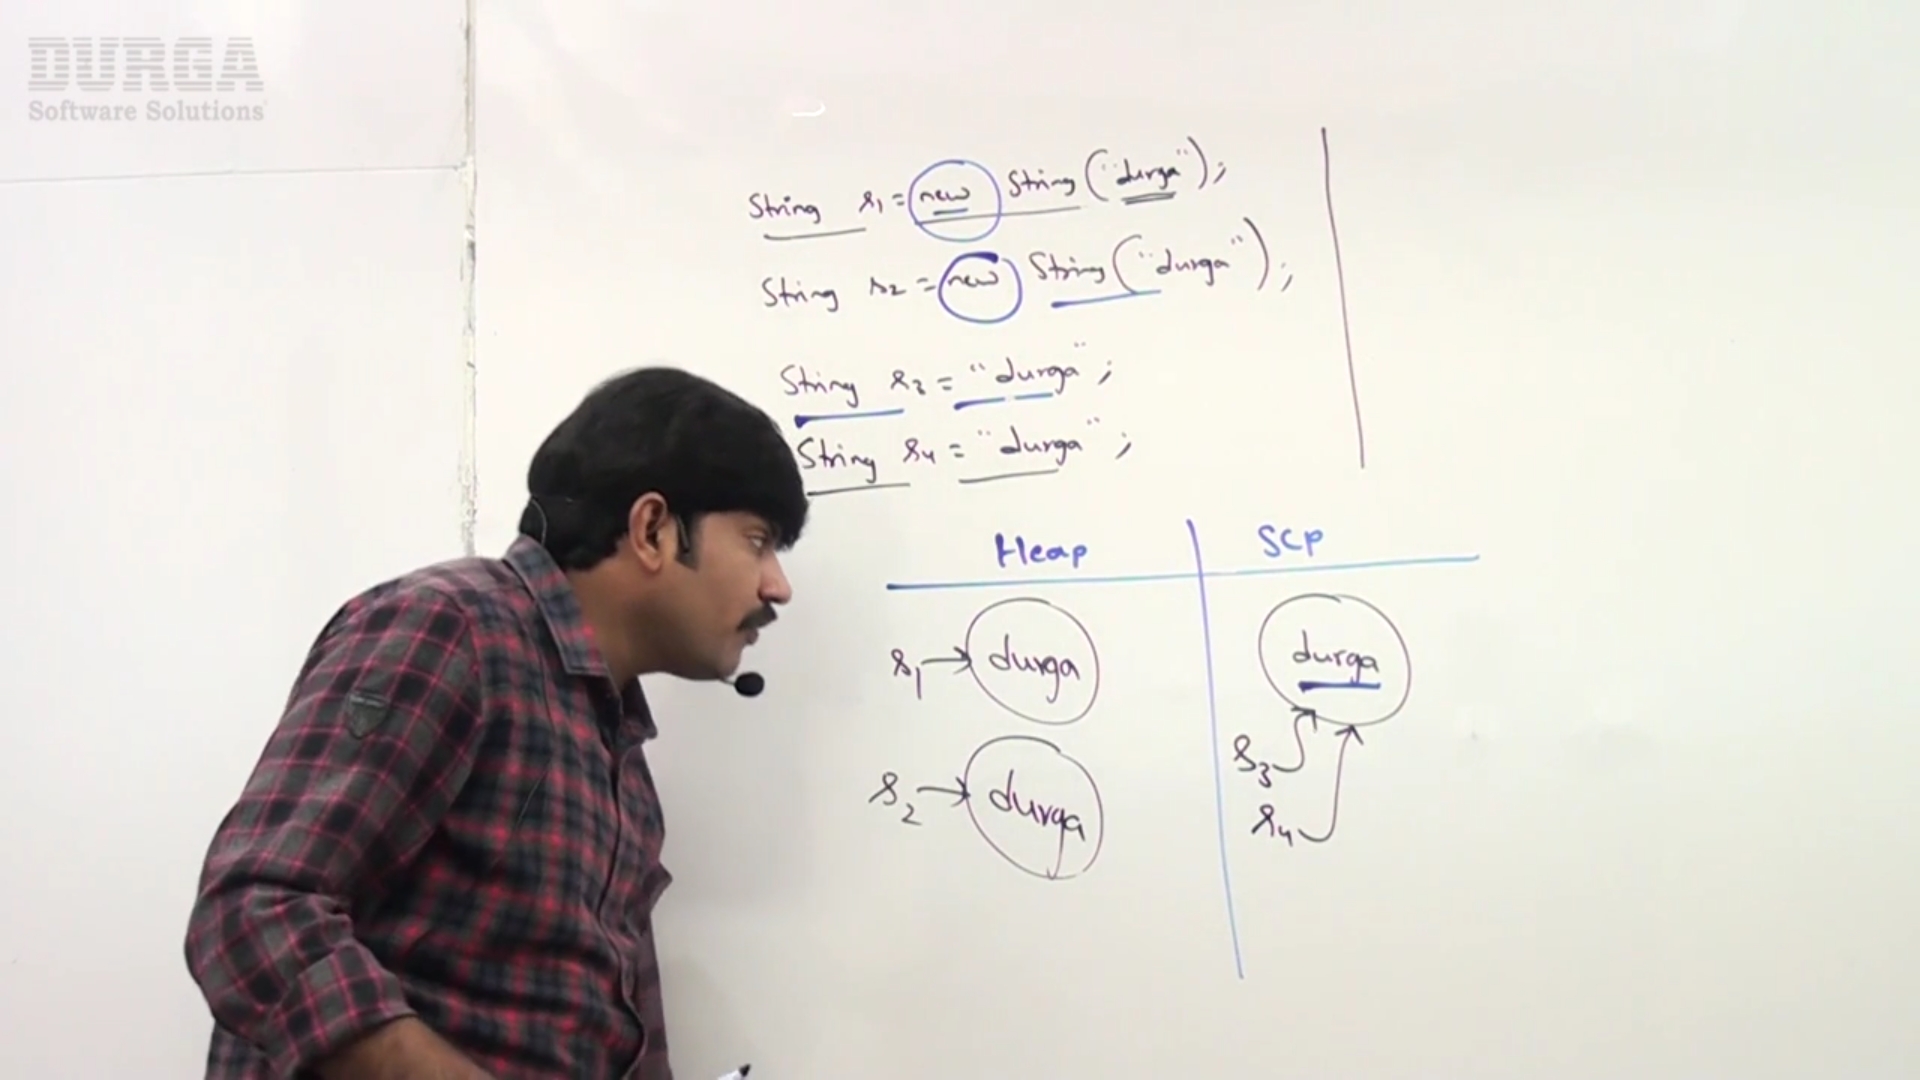 DURGA
Software Solutions
String s1 = new String("durga");
String s2 = new String("durga");
String s3 = "durga";
String s4 = "durga";
Heap SCP
s1 durga durga
s3
s2 durga s4